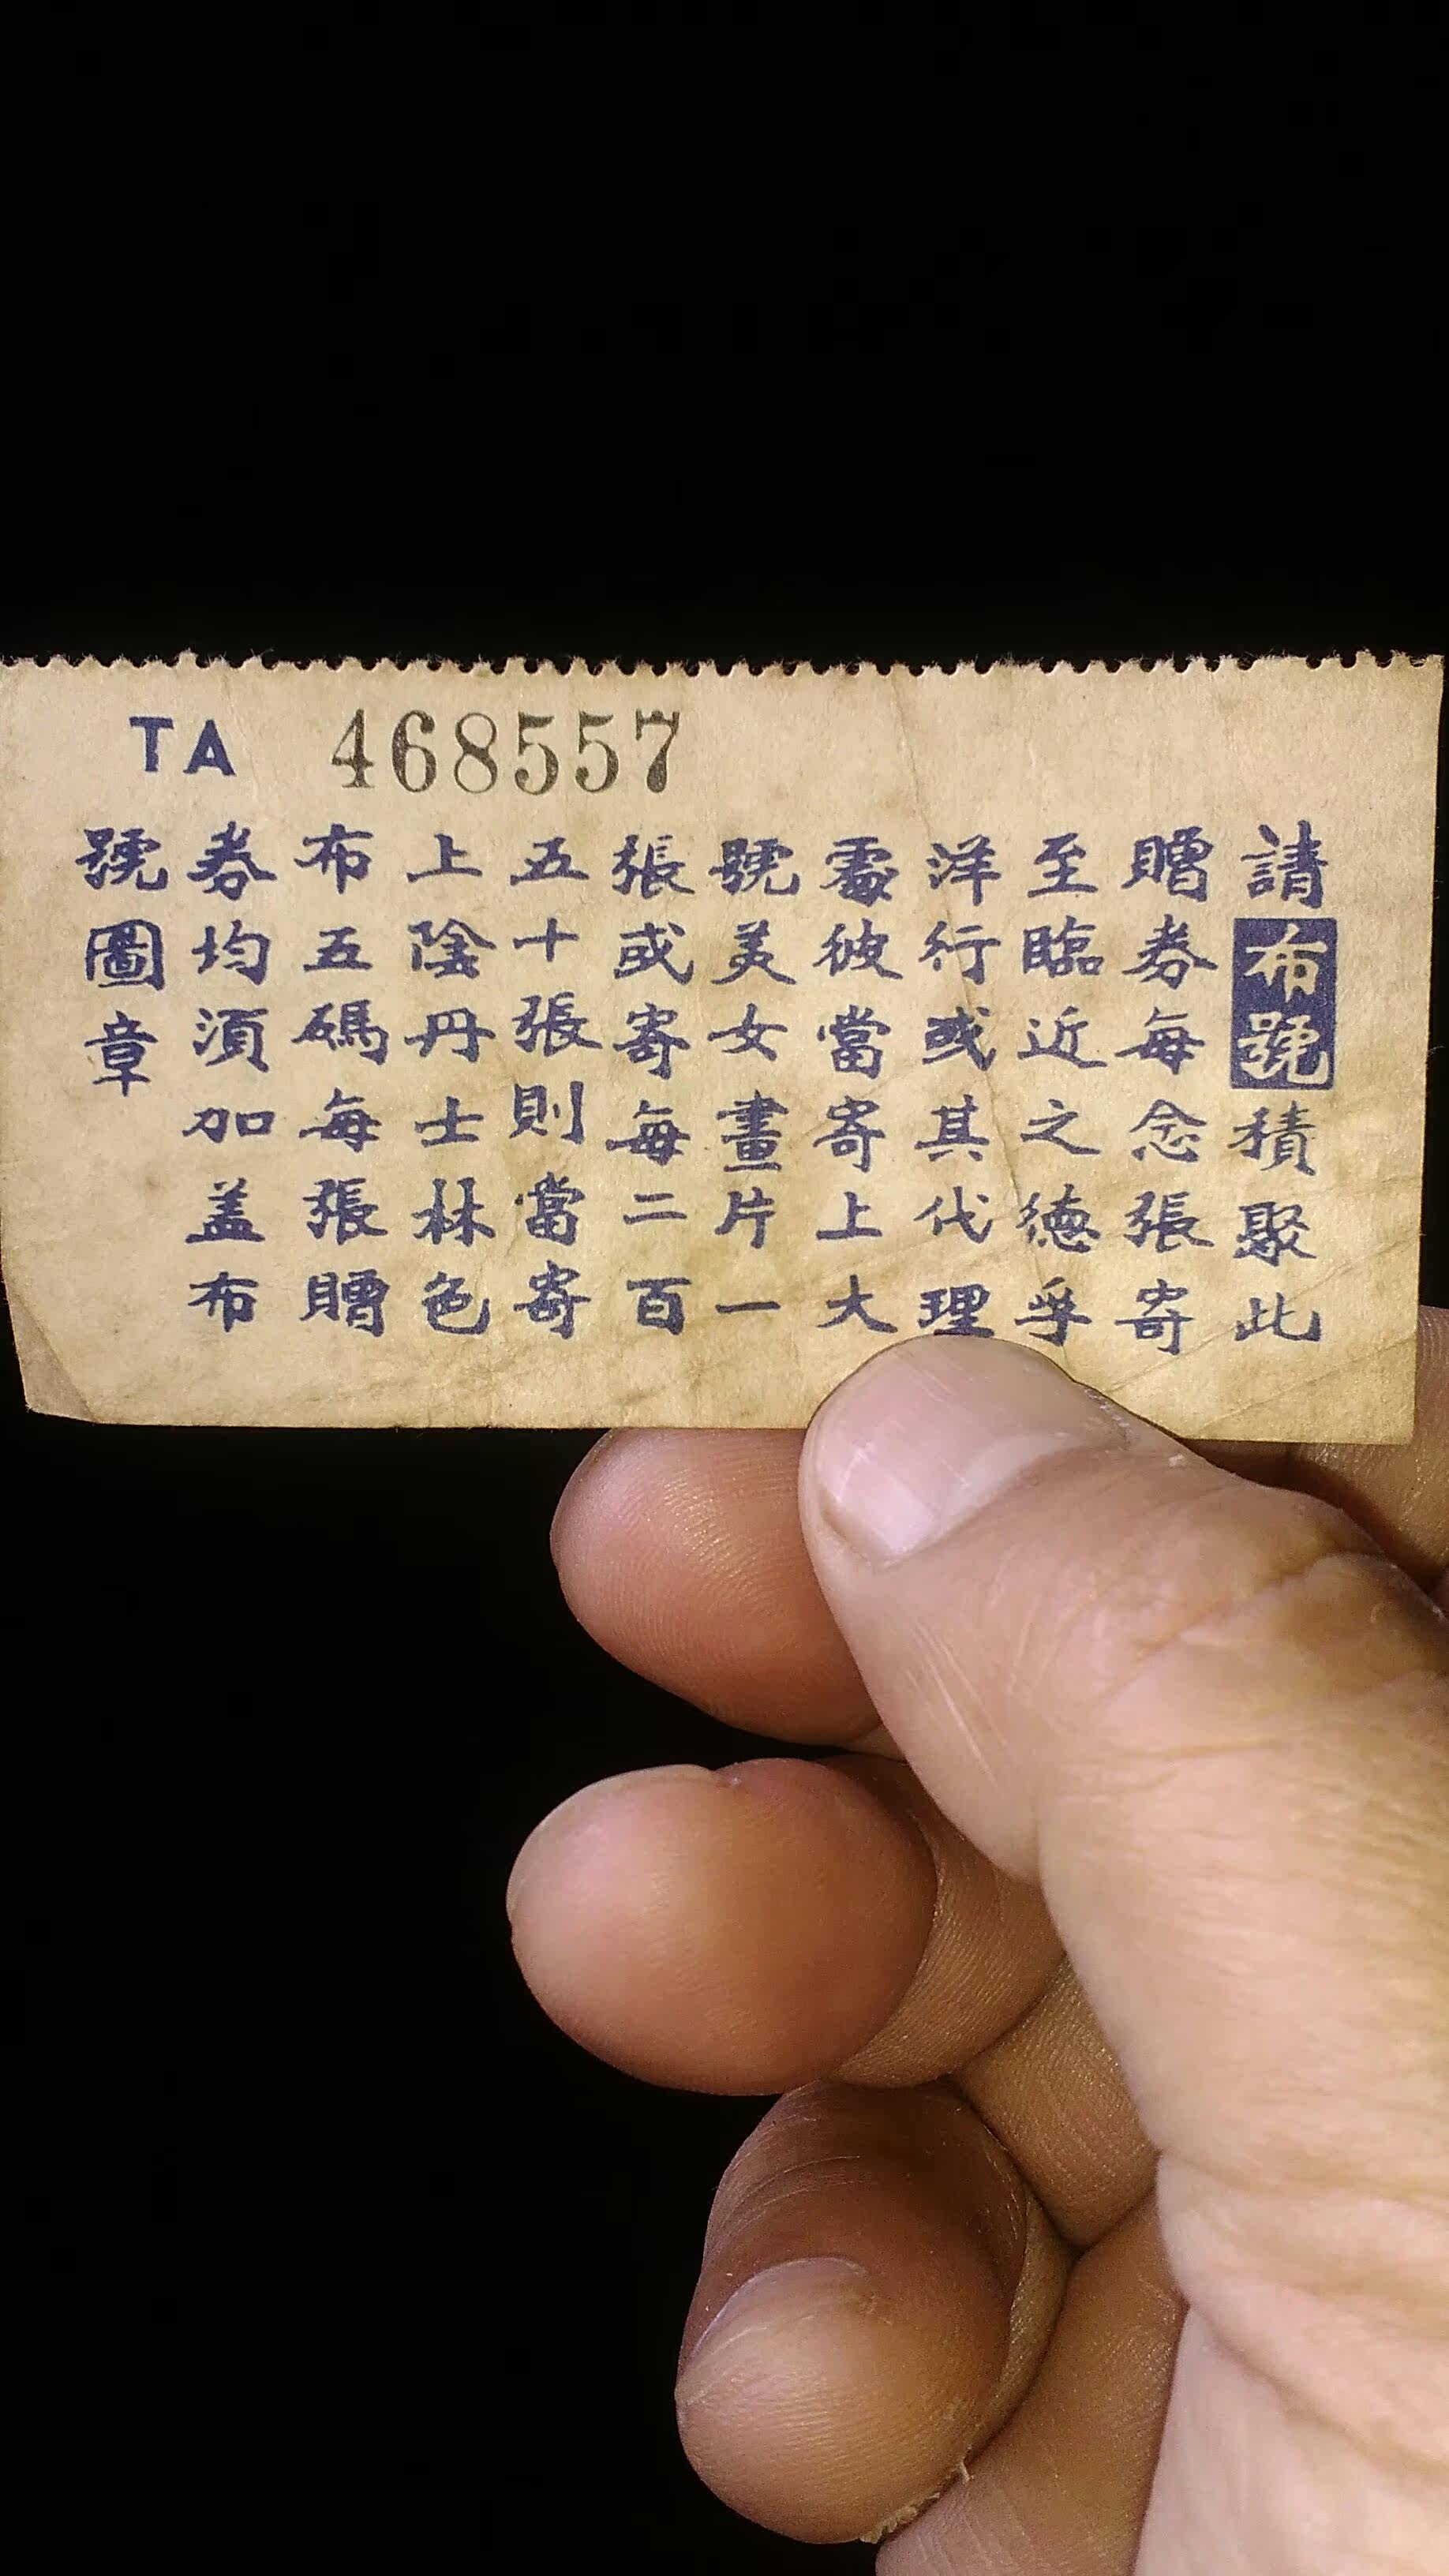 TA 468557
請布號積聚此
贈券每念張寄
至臨近之德孚
洋行或其代理
處彼當寄上大
號美女畫片一
張或寄每二百
五十張則當寄
上陰丹士林色
布五碼每張贈
券均須加盖布
號圖章